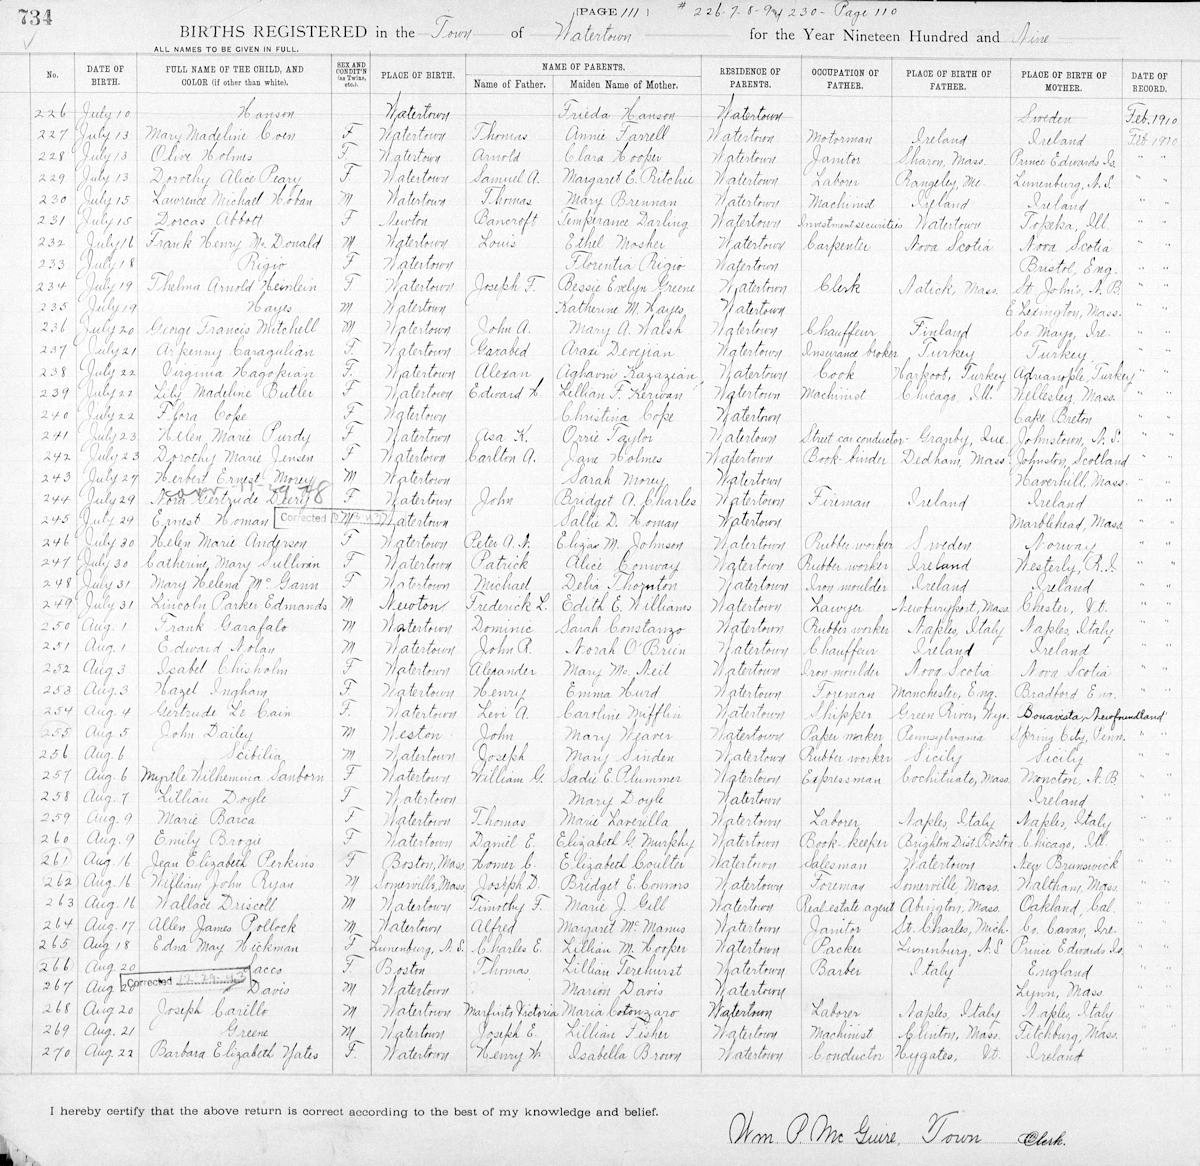 734
[PAGE 111] # 226-7-8-9 & 230 - Page 110
BIRTHS REGISTERED in the Town of Watertown for the Year Nineteen Hundred and Nine
ALL NAMES TO BE GIVEN IN FULL.
No. DATE OF BIRTH. FULL NAME OF THE CHILD, AND COLOR (if other than white). SEX AND CONDIT'N (as Twins, etc.). PLACE OF BIRTH. NAME OF PARENTS. Name of Father. Maiden Name of Mother. RESIDENCE OF PARENTS. OCCUPATION OF FATHER. PLACE OF BIRTH OF FATHER. PLACE OF BIRTH OF MOTHER. DATE OF RECORD.
226 July 10 Hanson Watertown Frieda Hanson Watertown Sweden Feb. 1910
227 July 13 Mary Madeline Coen F Watertown Thomas Annie Farrell Watertown Motorman Ireland Ireland Feb. 1910
228 July 13 Olive Holmes F. Watertown Arnold Clara Hooper Watertown Janitor Sharon, Mass. Prince Edwards Is. " "
229 July 13 Dorothy Alice Peary F Watertown Samuel A. Margaret E. Ritchie Watertown Laborer Rangeley, Me. Lunenburg, N.S. " "
230 July 15 Lawrence Michael Hoban M Watertown Thomas Mary Brennan Watertown Machinist Ireland Ireland " "
231 July 15 Dorcas Abbott F Newton Bancroft Temperance Darling Watertown Investment securities Watertown Topeka, Ill. " "
232 July 16 Frank Henry Mc Donald M Watertown Louis Ethel Mosher Watertown Carpenter Nova Scotia Nova Scotia " "
233 July 18 Rigio F Watertown Florentia Rigio Watertown Bristol, Eng. " "
234 July 19 Thelma Arnold Heinlein F Watertown Joseph F. Bessie Evelyn Greene Watertown Clerk Natick, Mass. St John's, N.B. " "
235 July 19 Hayes M Watertown Katherine M. Hayes Watertown E Lexington, Mass. " "
236 July 20 George Francis Mitchell M Watertown John A. Mary A. Walsh Watertown Chauffeur Finland Co. Mayo, Ire. " "
237 July 21 Arpenny Caragulian F. Watertown Garabed Araxi Devejian Watertown Insurance broker Turkey Turkey " "
238 July 22 Virginia Hagopian F. Watertown Alexan Aghavni Kazazian Watertown Cook Harpoot, Turkey Adrianople, Turkey " "
239 July 22 Lily Madeline Butler F Watertown Edward H. Lillian F. Kerwan Watertown Machinist Chicago, Ill. Wellesley, Mass. " "
240 July 22 Flora Cope F Watertown Christina Cope Watertown Cape Breton " "
241 July 23 Helen Marie Purdy F Watertown Asa K. Orrie Taylor Watertown Street car conductor Granby, Que. Johnstown, N.S. " "
242 July 23 Dorothy Marie Jensen F Watertown Carlton A. Jane Holmes Watertown Book-binder Dedham, Mass. Johnston, Scotland " "
243 July 27 Herbert Ernest Morey M Watertown Sarah Morey Watertown Haverhill, Mass. " "
244 July 29 Nora Gertrude Deery F Watertown John Bridget A. Charles Watertown Fireman Ireland Ireland " "
245 July 29 Ernest Homan Corrected M Watertown Sallie D. Homan Watertown Marblehead, Mass. " "
246 July 30 Helen Marie Anderson F Watertown Peter A. N. Eliza M. Johnson Watertown Rubber worker Sweden Norway " "
247 July 30 Catherine Mary Sullivan F Watertown Patrick Alice Conway Watertown Rubber worker Ireland Westerly, R.I. " "
248 July 31 Mary Helena Mc Gann F Watertown Michael Delia Thornton Watertown Iron moulder Ireland Ireland " "
249 July 31 Lincoln Parker Edmands M Newton Frederick L. Edith E. Williams Watertown Lawyer Newburyport, Mass Chester, Vt. " "
250 Aug. 1 Frank Garafalo M Watertown Dominic Sarah Constanzo Watertown Rubber worker Naples, Italy Naples, Italy " "
251 Aug. 1 Edward Nolan M Watertown John R. Norah O'Brien Watertown Chauffeur Ireland Ireland " "
252 Aug. 3 Isabel Chisholm F Watertown Alexander Mary Mc Neil Watertown Iron moulder Nova Scotia Nova Scotia " "
253 Aug. 3 Hazel Ingham F. Watertown Henry Emma Hurd Watertown Foreman Manchester, Eng. Bradford Eng. " "
254 Aug. 4 Gertrude Le Cain F. Watertown Levi A. Caroline Mifflin Watertown Shipper Green River, Wyo. Bonavista, Newfoundland " "
255 Aug. 5 John Dailey M Weston John Mary Weaver Watertown Paper maker Pennsylvania Spring City, Penn. " "
256 Aug. 6 Scibilia M Watertown Joseph Mary Sinden Watertown Rubber worker Sicily Sicily " "
257 Aug. 6 Myrtle Wilhemina Sanborn F Watertown William G. Sadie E. Plummer Watertown Expressman Cochituate, Mass. Moncton, N.B. " "
258 Aug. 7 Lillian Doyle F Watertown Mary Doyle Watertown Ireland " "
259 Aug. 9 Marie Barca F Watertown Thomas Marie Laverilla Watertown Laborer Naples, Italy Naples, Italy " "
260 Aug. 9 Emily Brogie F Watertown Daniel E. Elizabeth G. Murphy Watertown Book-keeper Brighton Dist. Boston Chicago, Ill. " "
261 Aug. 16 Jean Elizabeth Perkins F Boston, Mass. Homer C. Elizabeth Coulter Watertown Salesman Watertown New Brunswick " "
262 Aug. 16 William John Ryan M Somerville, Mass. Joseph D. Bridget E. Connors Watertown Foreman Somerville Mass. Waltham, Mass. " "
263 Aug. 16 Wallace Driscoll M Watertown Timothy F. Marie J. Gill Watertown Real estate agent Abington, Mass. Oakland, Cal. " "
264 Aug. 17 Allen James Pollock M Watertown Alfred Margaret Mc Manus Watertown Janitor St. Charles, Mich. Co. Cavan, Ire. " "
265 Aug 18 Edna May Hickman F Lunenburg, N.S. Charles E. Lillian M. Hooper Watertown Packer Lunenburg, N.S Prince Edwards Is. " "
266 Aug. 20 acco F. Boston Thomas Lillian Terehurst Watertown Barber Italy England " "
267 Aug 20 Corrected 12-29-43 Davis M Watertown Marion Davis Watertown Lynn, Mass. " "
268 Aug. 20 Joseph Carillo M Watertown Victoria Maria Cotonzaro Watertown Laborer Naples, Italy Naples, Italy " "
269 Aug. 21 Greene M Watertown Joseph E. Lillian Fisher Watertown Machinist Clinton, Mass. Fitchburg, Mass. " "
270 Aug. 22 Barbara Elizabeth Yates F. Watertown Henry W. Isabella Brown Watertown Conductor Hygates, Vt. Ireland " "
I hereby certify that the above return is correct according to the best of my knowledge and belief.
Wm. P. Mc Guire, Town Clerk.